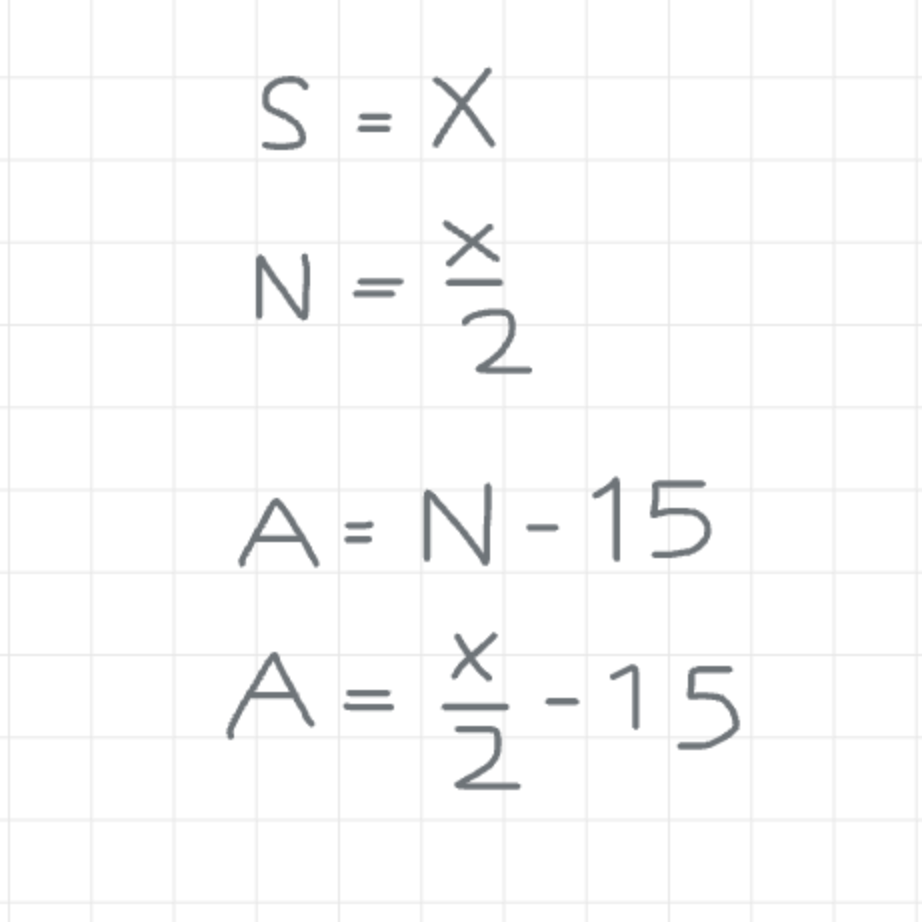 S = X
N = x/2
A = N - 15
A = x/2 - 15